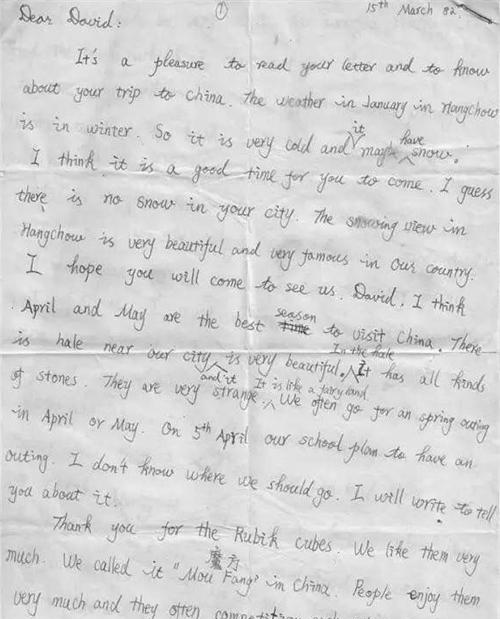 ①
15th March 82.
Dear David:
It's a pleasure to read your letter and to know
about your trip to China. The weather in January in Hangchow
is in winter. So it is very cold and it maybe have snow.
I think it is a good time for you to come. I guess
there is no snow in your city. The snowing view in
Hangchow is very beautiful and very famous in our country.
I hope you will come to see us. David, I think
April and May are the best time season to visit China. There
is hale near our city and it is very beautiful. In the hale It has all kinds
of stones. They are very strange. It is like a fairyland We often go for an spring outing
in April or May. On 5th April our school plan to have an
outing. I don't know where we should go. I will write to tell
you about it.
Thank you for the Rubik cubes. We like them very
much. We called it "Mou Fang" 魔方 in China. People enjoy them
very much and they often